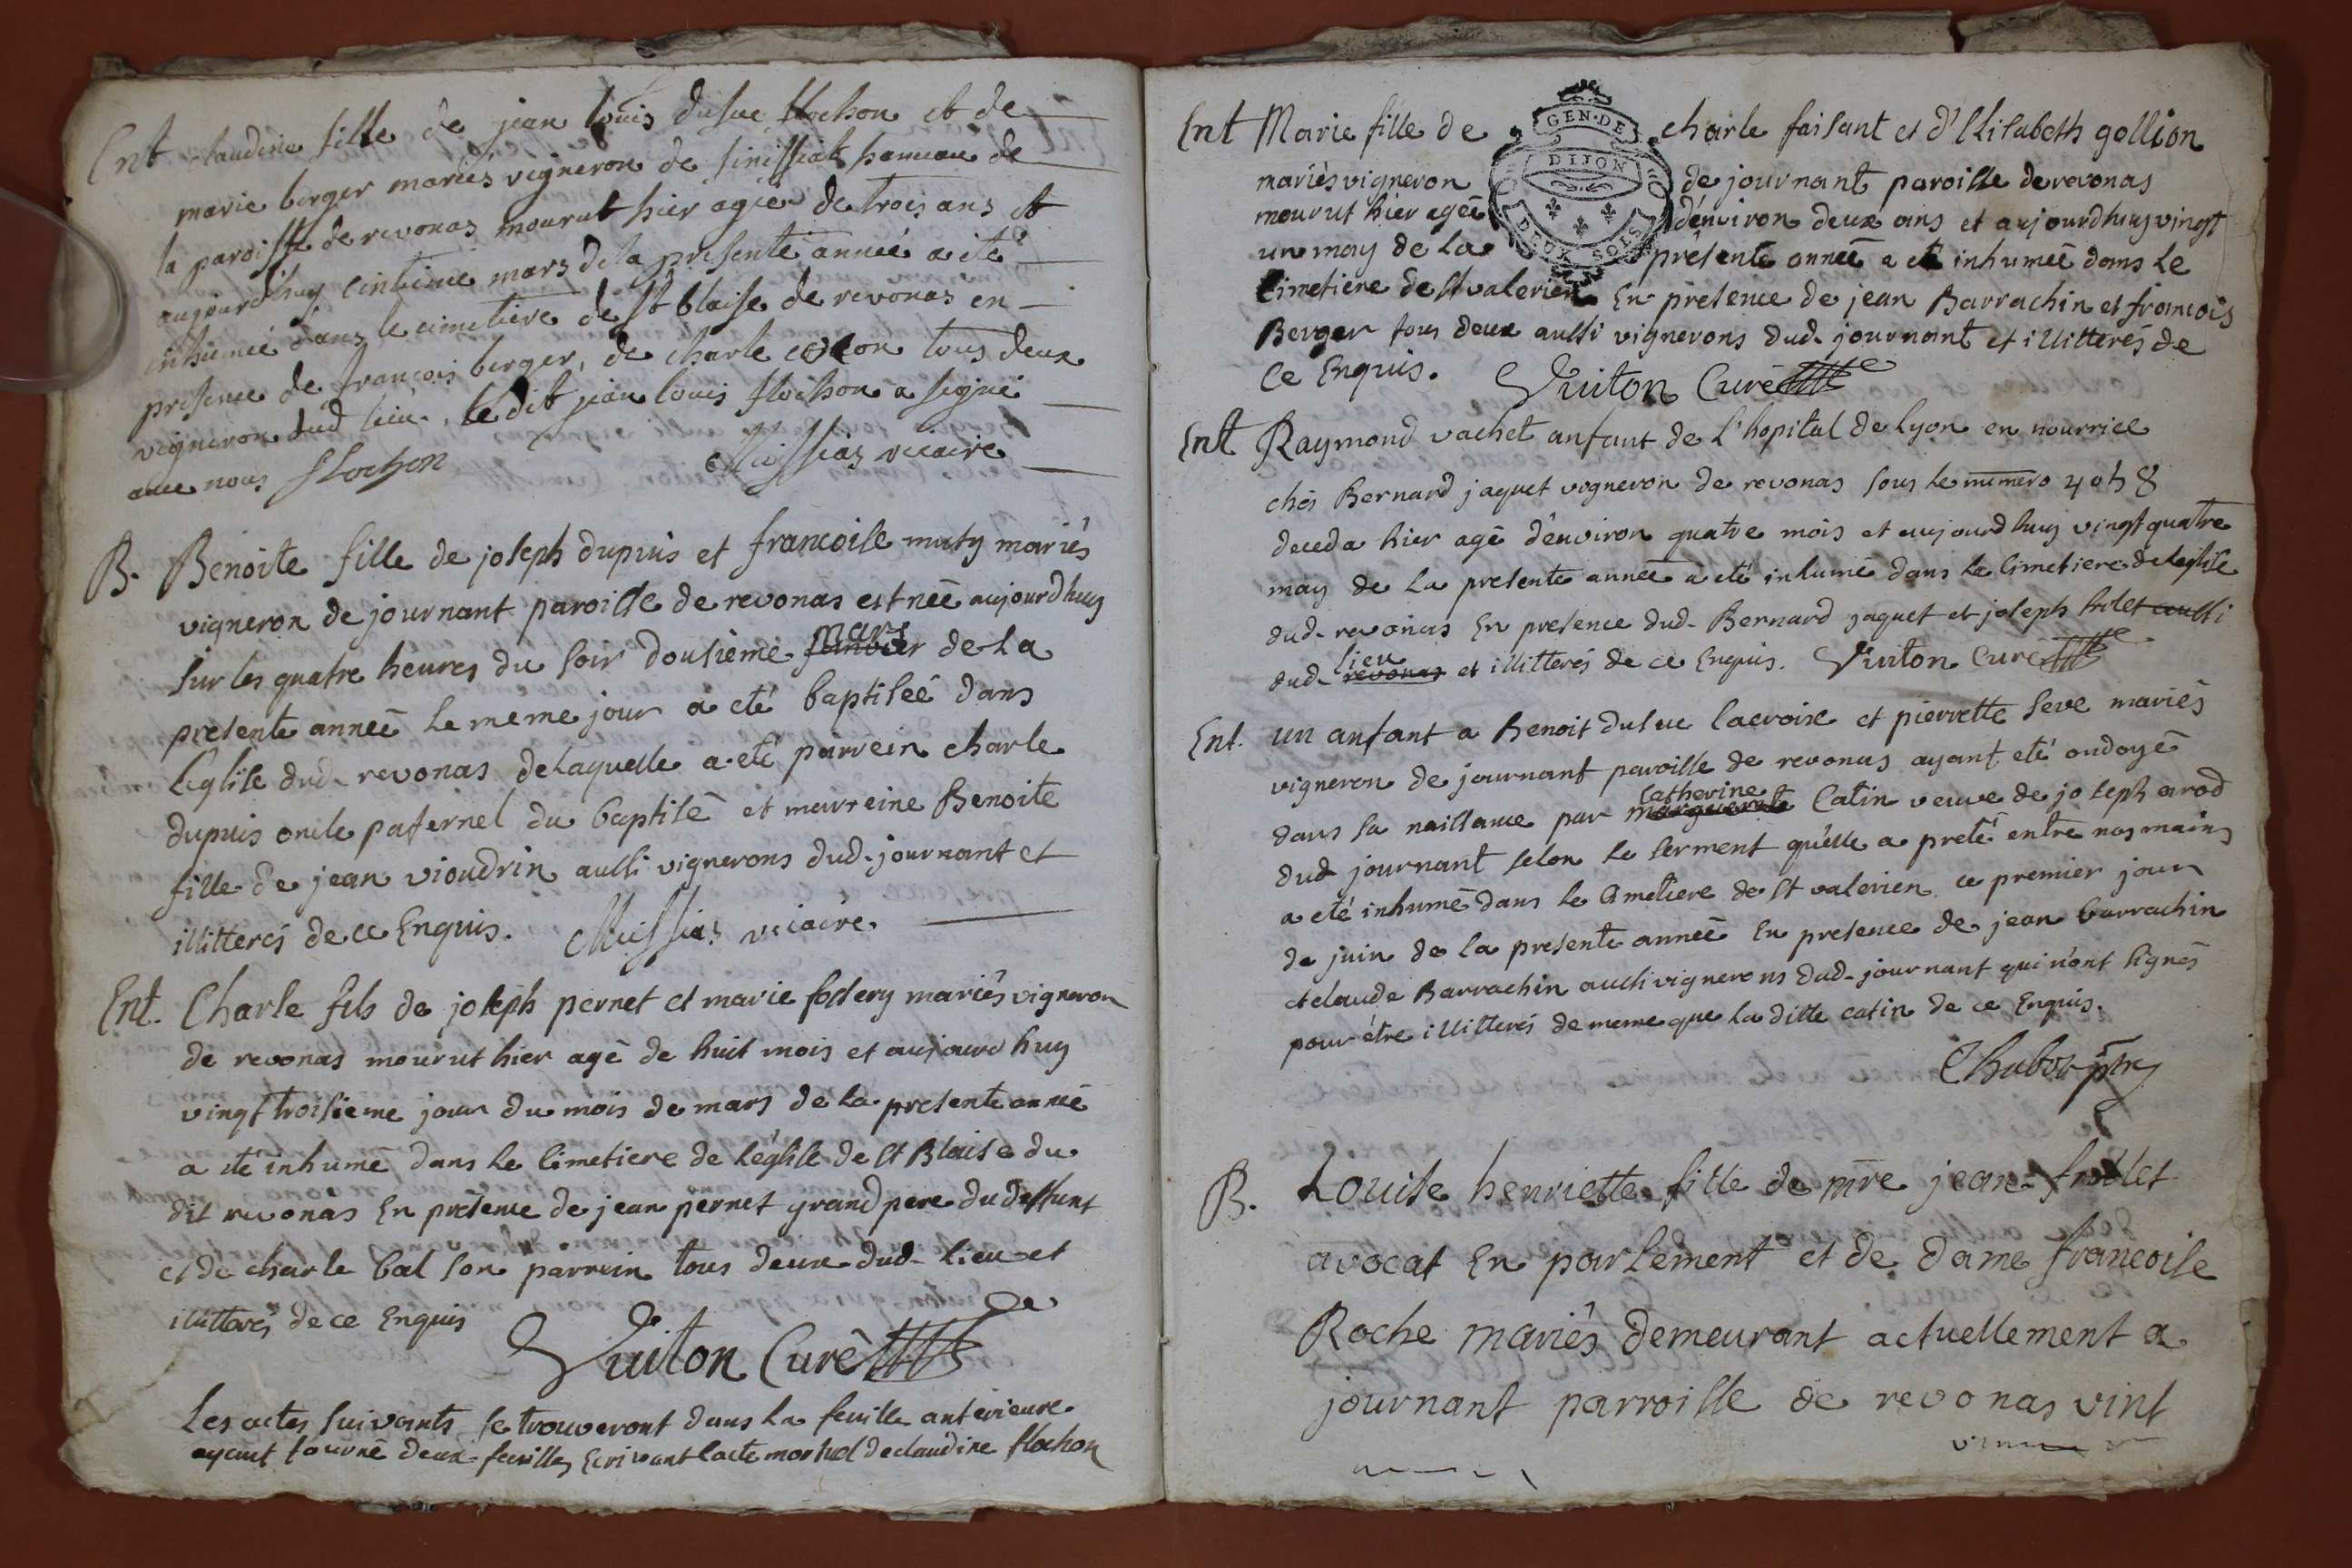 Ent claudine fille de jean louis dufue flochon et de
marie berger mariés vigneron de sinissiat hameau de
la paroisse de revonas mourut hier ageé de trois ans et
aujourdhuy cintieme mars de la presente anneé a eté
inhumeé dans le cimetiere de st blaise de revonas en
presence de francois berger, de charle tous deux
vigneron dud lieu, ledit jean louis flochon a signé
avec nous flochon Missias vicaire
B. Benoite fille de joseph dupuis et francoise muty mariés
vigneron de journant paroisse de revonas est neé aujourdhuy
sur les quatre heures du soir dousieme janvier mars de la
presente anneé le meme jour a eté baptiseé dans
l'eglise dud. revonas de laquelle a eté parrein charle
dupuis oncle paternel du baptisé et marreine Benoite
fille de jean vioudrin aussi vignerons dud. journant et
illitterés de ce Enquis. Missias vicaire.
Ent. Charle fils de joseph pernet et marie mariés vigneron
de revonas mourut hier agé de huit mois et aujourdhuy
vingt troisieme jour du mois de mars de la presente anneé
a eté inhumé dans le Cimetiere de l'église de st Blaise du
dit revonas En présence de jean pernet grand pere du deffunt
et de charle bal son parrein tous deux dud. lieu et
illitterés de ce Enquis
Vuiton Curé
Les actes suivants se trouveront dans la feuille anterieure
ayant tourné deux feuilles Ecrivant lacte mortuel de claudine flochon
Ent Marie fille de charle faisant et d'Elisabeth gollion
mariés vigneron de journant paroisse de revonas
mourut hier ageé d'environ deux ans et aujourdhuy vingt
un may de la présente anneé a eté inhumeé dans le
Cimetiere de st valerien En présence de jean Barrachin et francois
Berger tous deux aussi vignerons dud. journant et illitterés de
ce Enquis. Vuiton Curé
GEN. DE
DIJON
DEUX SOLS
Ent Raymond vachet anfant de l'hopital de Lyon en nourrice
chés Bernard jaquet vigneron de revonas sous le numero
deceda hier agé d'environ quatre mois et aujourdhuy vingt quatre
may de la presente anneé a eté inhumé dans le Cimetiere de leglise
dud. revonas En presence dud. Bernard jaquet et joseph aussi
dud. revonas lieu et illitterés de ce Enquis. Vuiton Curé
Ent. un anfant a Benoit dufue lacroix et pierrette seve mariés
vigneron de journant paroisse de revonas ayant eté ondoyé
dans sa naissance par marguerete Catherine Catin veuve de joseph arod
dud journant selon le serment qu'elle a preté entre nos mains
a eté inhumé dans le Cimetiere de st valerien ce premier jour
de juin de la presente anneé En presence de jean barrachin
et claude Barrachin aussi vignerons dud. journant qui n'ont signés
pour être illitterés de meme que la ditte catin de ce Enquis.
Chabot ptre
B. Louise henriette fille de mre jean frollet
avocat En parlement et de Dame francoise
Roche mariés demeurant actuellement a
journant parroisse de revonas vint